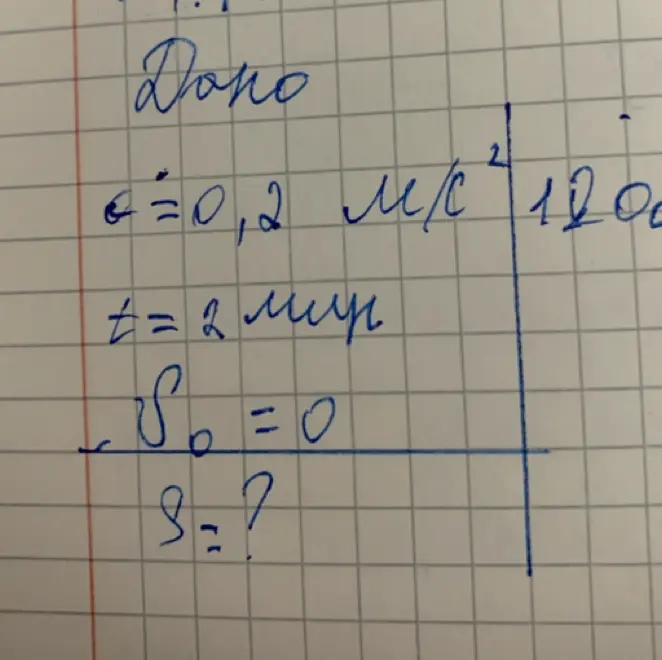 Дано
a = 0,2 м/с² 120
t = 2 мин
v₀ = 0
S = ?